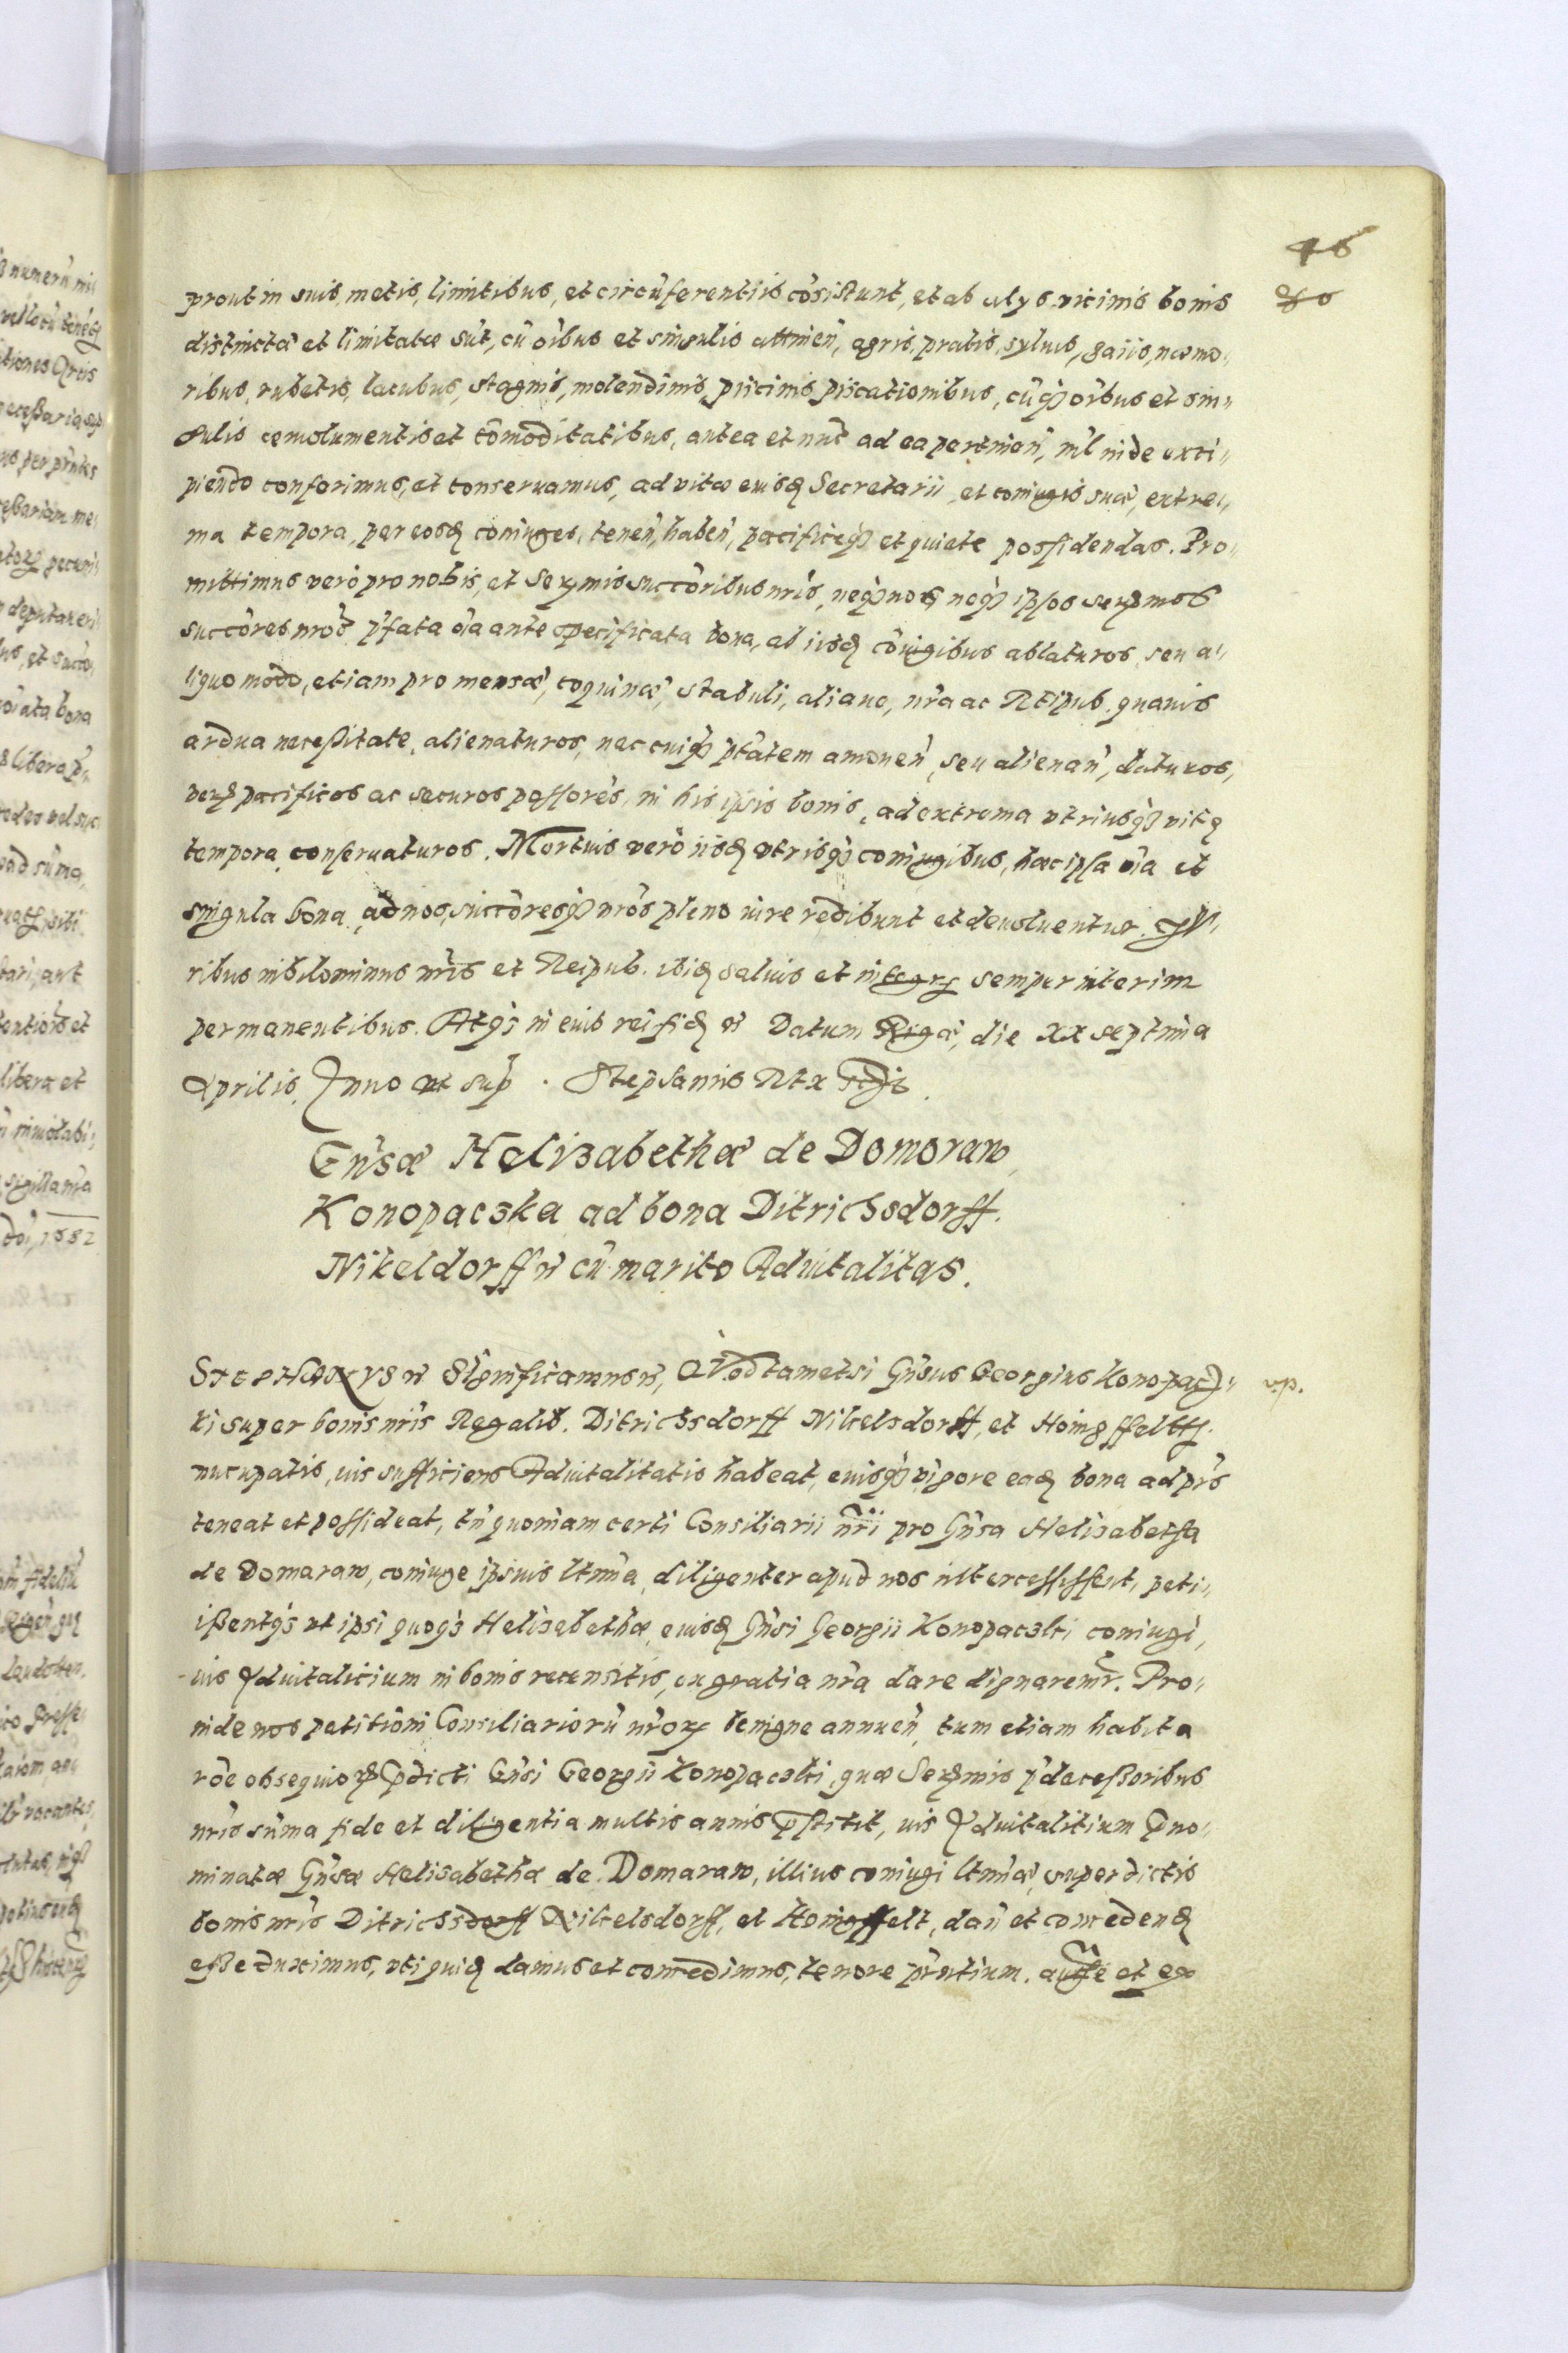 46
prout in suis metis, limitibus, et circūferentiis cōsistunt, et ab alys vicinis bonis
distinctæ et limitatæ sūt, cū oībus et singulis attinen̄, agris, pratis, syluis, gaiis, nemo,,
ribus, rubetis, lacubus, stagnis, molendinis, piscinis, piscationibus, cūq₃ oībus et sin,,
gulis emolumentis et cōmoditatibus, antea et nūc ad ea pertinen̄, nīl inde exci,,
piendo conferimus, et conseruamus, ad vitæ eiusđ Secretarii et coniugis suæ, extre,,
ma tempora, per eosđ coniuges, tenen̄, haben̄, pacificeq₃ et quiete possidendas. Pro,,
mittimus verò pro nobis, et Serꝫmis succōribus nrīs, neq₃ nos, neq₃ ipsos serꝫmos
succōres nrōs p̄fata oīa ante specificata bona, ab iisđ cōiugibus ablaturos, seu a,,
liquo modo, etiam pro mensæ, coquinæ, stabuli, aliaue, nrā ac Reipub. quauis
ardua necessitate, alienaturos, nec cuiq₃ ptātem amouen̄, seu alienan̄, daturos,
verꝫ pacificos ac securos possorēs, in his ipsis bonis, ad extrema vtriusq₃ vitę
tempora conseruaturos. Mortuis verò iisđ vtrisq₃ coniugibus, hæc ipsa oīa et
singula bona, ad nos, succōresq₃ nrōs pleno iure redibunt et deuoluentur. Iu,,
ribus nihilominus nrīs et Reipub. ibiđ saluis et integris semper interim
permanentibus. Atq₃ in eius rei fiđ ꝛc Datum Rigæ, die xx septima
Aprilis, Anno vt sup̄. Stephanus Rex
Gn̄sæ Helizabethæ de Domoraw
Konopaczka ad bona Ditrichsdorff.
Nikeldorff ꝛc cū marito Aduitalitas.
Stephanus ꝛc Significamus ꝛc, Quod tametsi Gn̄sus Georgius Konopacz,,
v.p.
ki super bonis nrīs Regalib. Ditrichsdorff Nikelsdorff, et
nūcupatis, ius sufficiens Aduitalitatis habeat, eiusq₃ vigore eađ bona ad prn̄s
teneat et possideat, tn̄ quoniam certi Consiliarii nrī̄ pro Gn̄sa Helisabetha
de Domaraw, coniuge ipsius ltm̄a, diligenter apud nos intercessissent, peti,,
issentq₃ vt ipsi quoq₃ Helisabethæ, eiusđ Gn̄si Georgii Konopaczki coniugi,
ius Aduitalicium in bonis recensitis, ex gratia nrā dare dignaremr̄. Pro,,
inde nos petitioni Consiliariorū nrōꝝ benigne annuen̄, tum etiam habita
rōe obsequioꝝ p̄dicti Gn̄si Georgii Konopaczki, quæ Serꝫmis p̄decessoribus
nrīs sūma fide et diligentia multis annis p̄stitit, ius Aduitalitium p̄no,,
minatæ Gn̄sæ Helisabethæ de Domaraw, illius coniugi ltm̄æ, super dictis
bonis nrīs Ditrichsdorff Nikelsdorff, et Honigffelt, dan̄ et concedenđ
esse duximus, vti quiđ damus et concedimus, tenore prn̄tium.